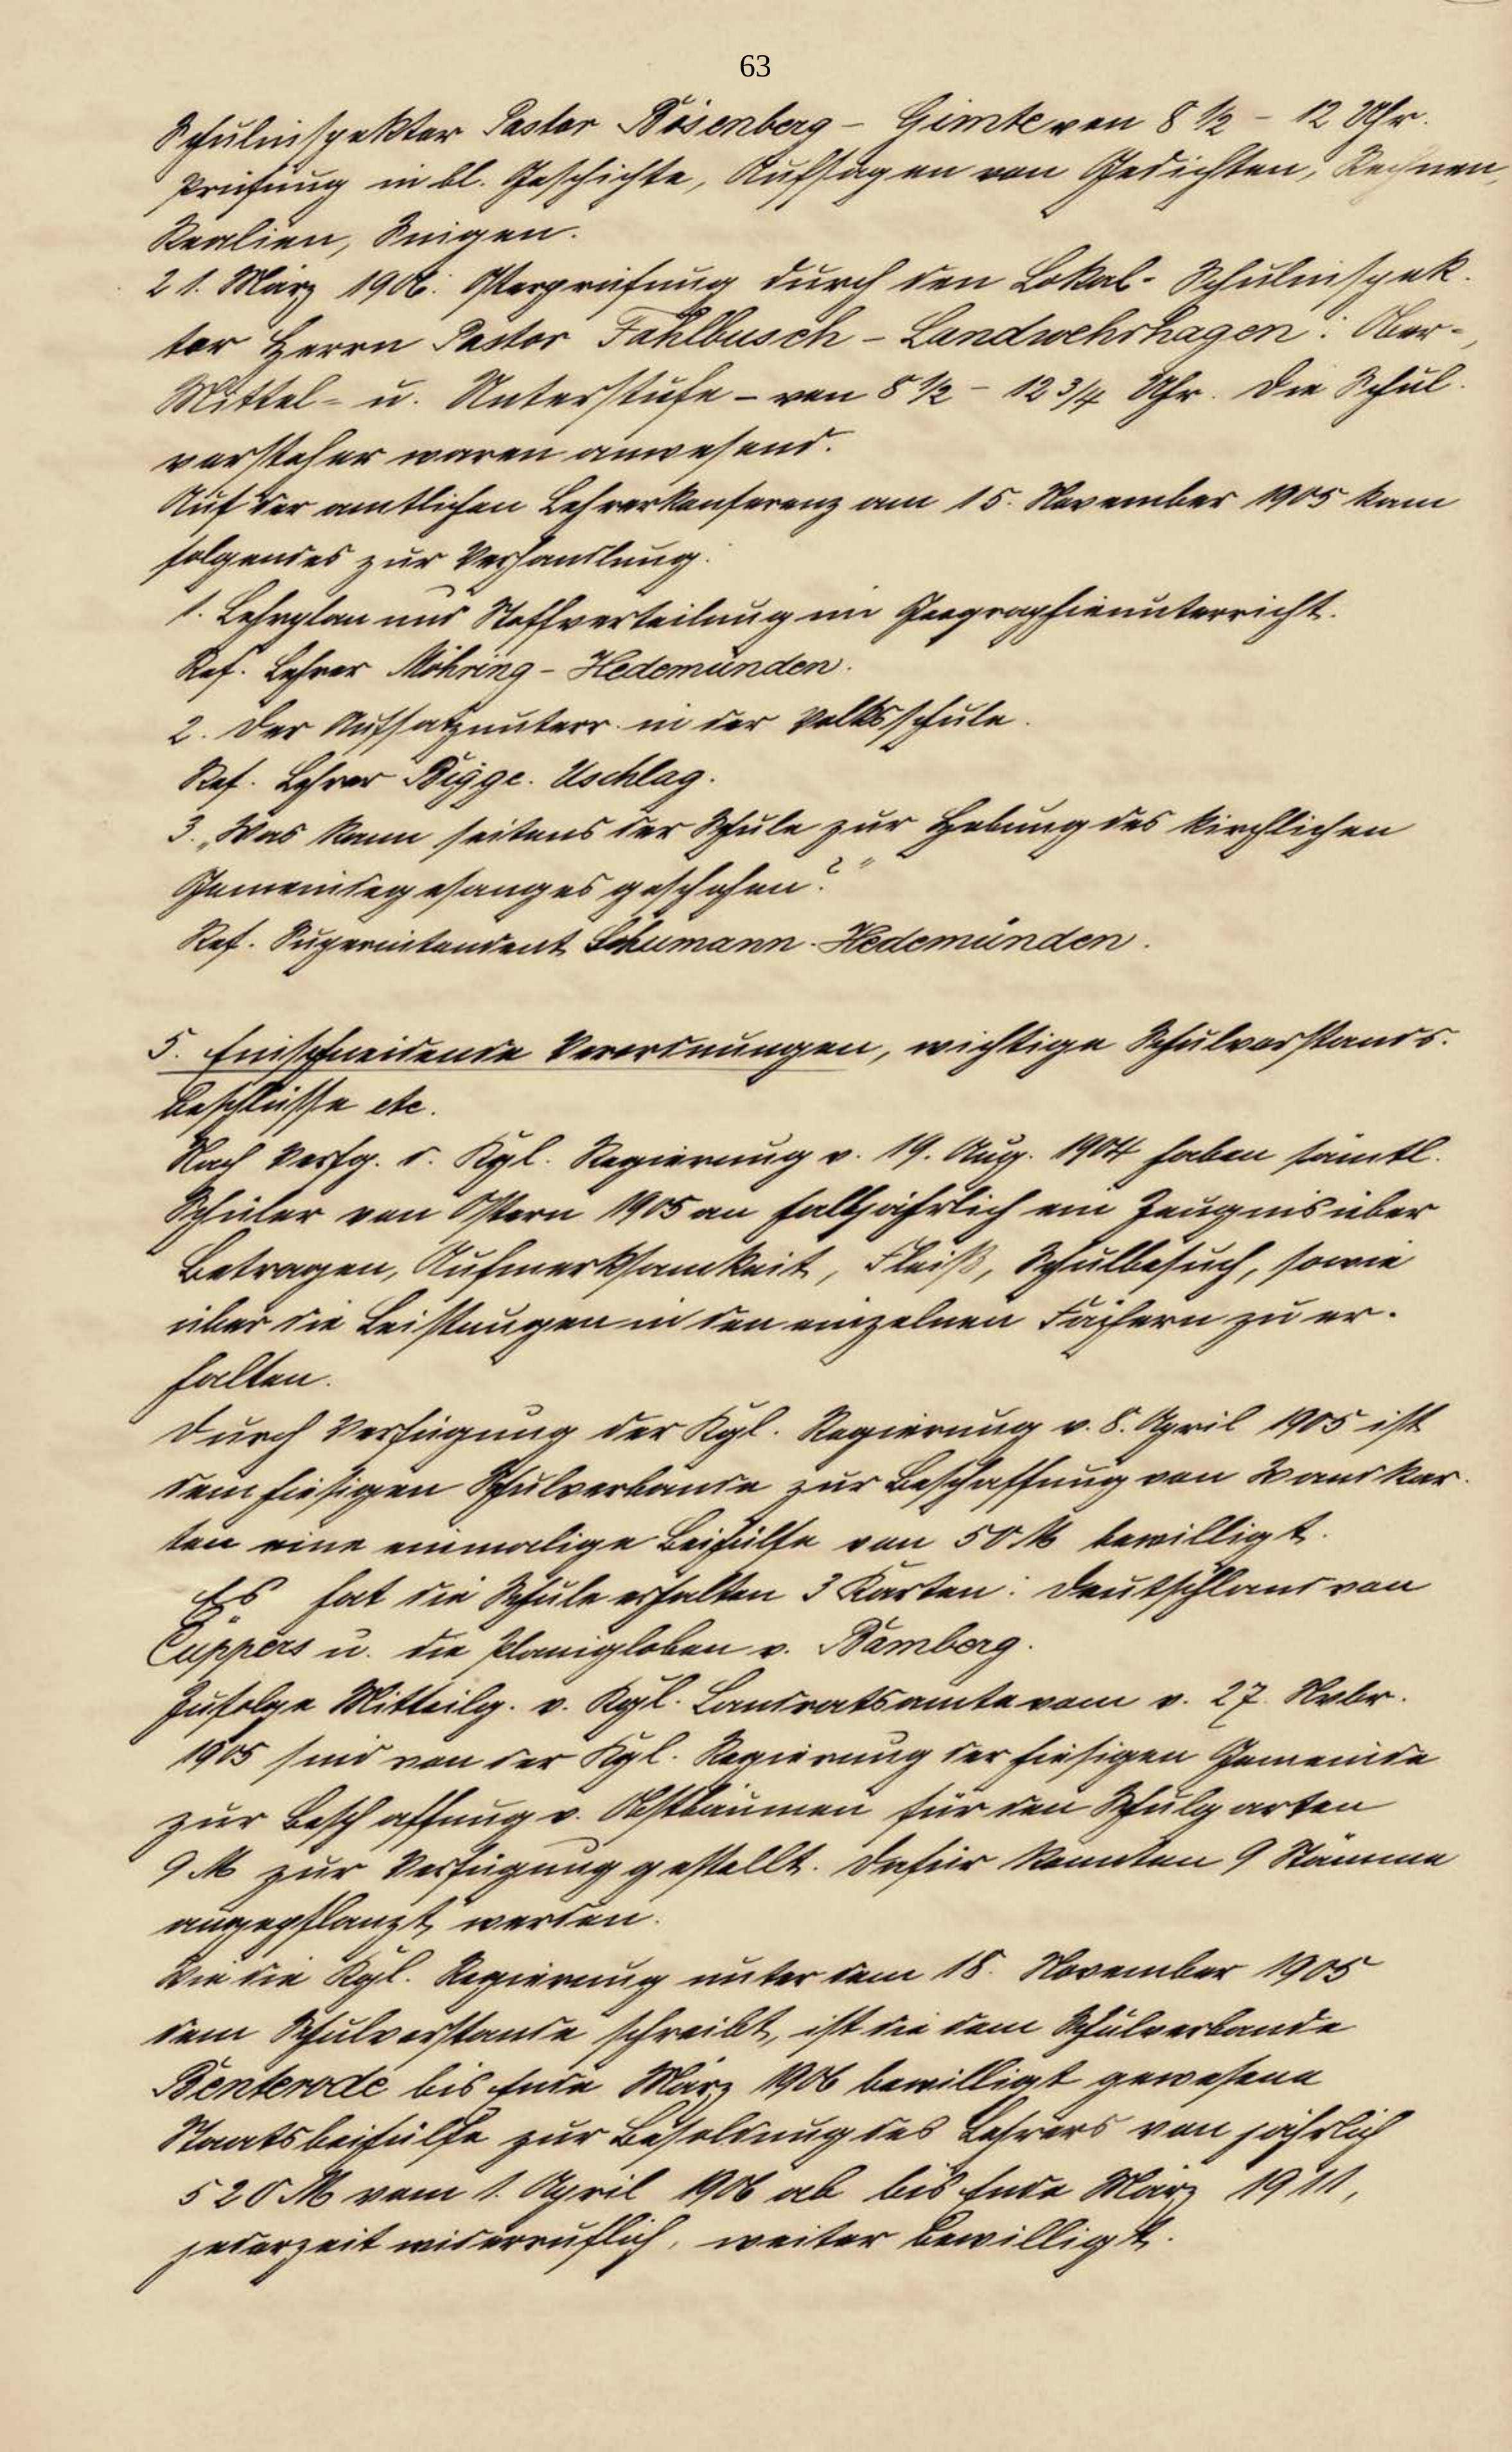 63
Schulinspektor Pastor Bösenberg – Gimte von 8 ½ – 12 Uhr.
Prüfung in bl. Geschichte, Aufsagen von Gedichten, Rechnen,
Realien, Singen.
21. März 1906: Osterprüfung durch den Lokal-Schulinspek-
tor Herrn Pastor Fahlbusch – Landwehrhagen: Ober-,
Mittel- u. Unterstufe – von 8 ½ – 12 3/4 Uhr. Die Schul-
vorsteher waren anwesend.
Auf der amtlichen Lehrerkonferenz am 15. November 1905 kam
folgendes zur Verhandlung:
1. Lehrplan und Stoffverteilung im Geographieunterricht.
Ref. Lehrer Möhring – Hedemünden.
2. Der Aufsatzunterr. in der Volksschule.
Ref. Lehrer Bigge. Uschlag.
3. „Was kann seitens der Schule zur Hebung des kirchlichen
Gemeindegesanges geschehen?"
Ref. Superintendent Schumann-Hedemünden.
5. Einschneidende Verordnungen, wichtige Schulvorstands-
beschlüsse etc.
Nach Verfg. d. Kgl. Regierung v. 19. Aug. 1904 haben sämtl.
Schüler von Ostern 1905 an halbjährlich ein Zeugnis über
Betragen, Aufmerksamkeit, Fleiß, Schulbesuch, sowie
über die Leistungen in den einzelnen Fächern zu er-
halten.
Durch Verfügung der Kgl. Regierung v. 8. April 1905 ist
dem hiesigen Schulverbande zur Beschaffung von Wandkar-
ten eine einmalige Beihülfe von 50 M bewilligt.
Es hat die Schule erhalten 3 Karten: Deutschland von
Cüppers u. die Planigloben v. Bamberg.
Zufolge Mitteilg. v. Kgl. Landratsamte vom v. 27. Nvbr.
1905 sind von der Kgl. Regierung der hiesigen Gemeinde
zur Beschaffung v. Obstbäumen für den Schulgarten
9 M zur Verfügung gestellt. Dafür konnten 9 Stämme
angepflanzt werden.
Wie die Kgl. Regierung unter dem 18. November 1905
dem Schulvorstande schreibt, ist die dem Schulverbande
Benterode bis Ende März 1906 bewilligt gewesene
Staatsbeihülfe zur Besoldung des Lehrers von jährlich
520 M vom 1. April 1906 ab bis Ende März 1911,
jederzeit widerruflich, weiter bewilligt.